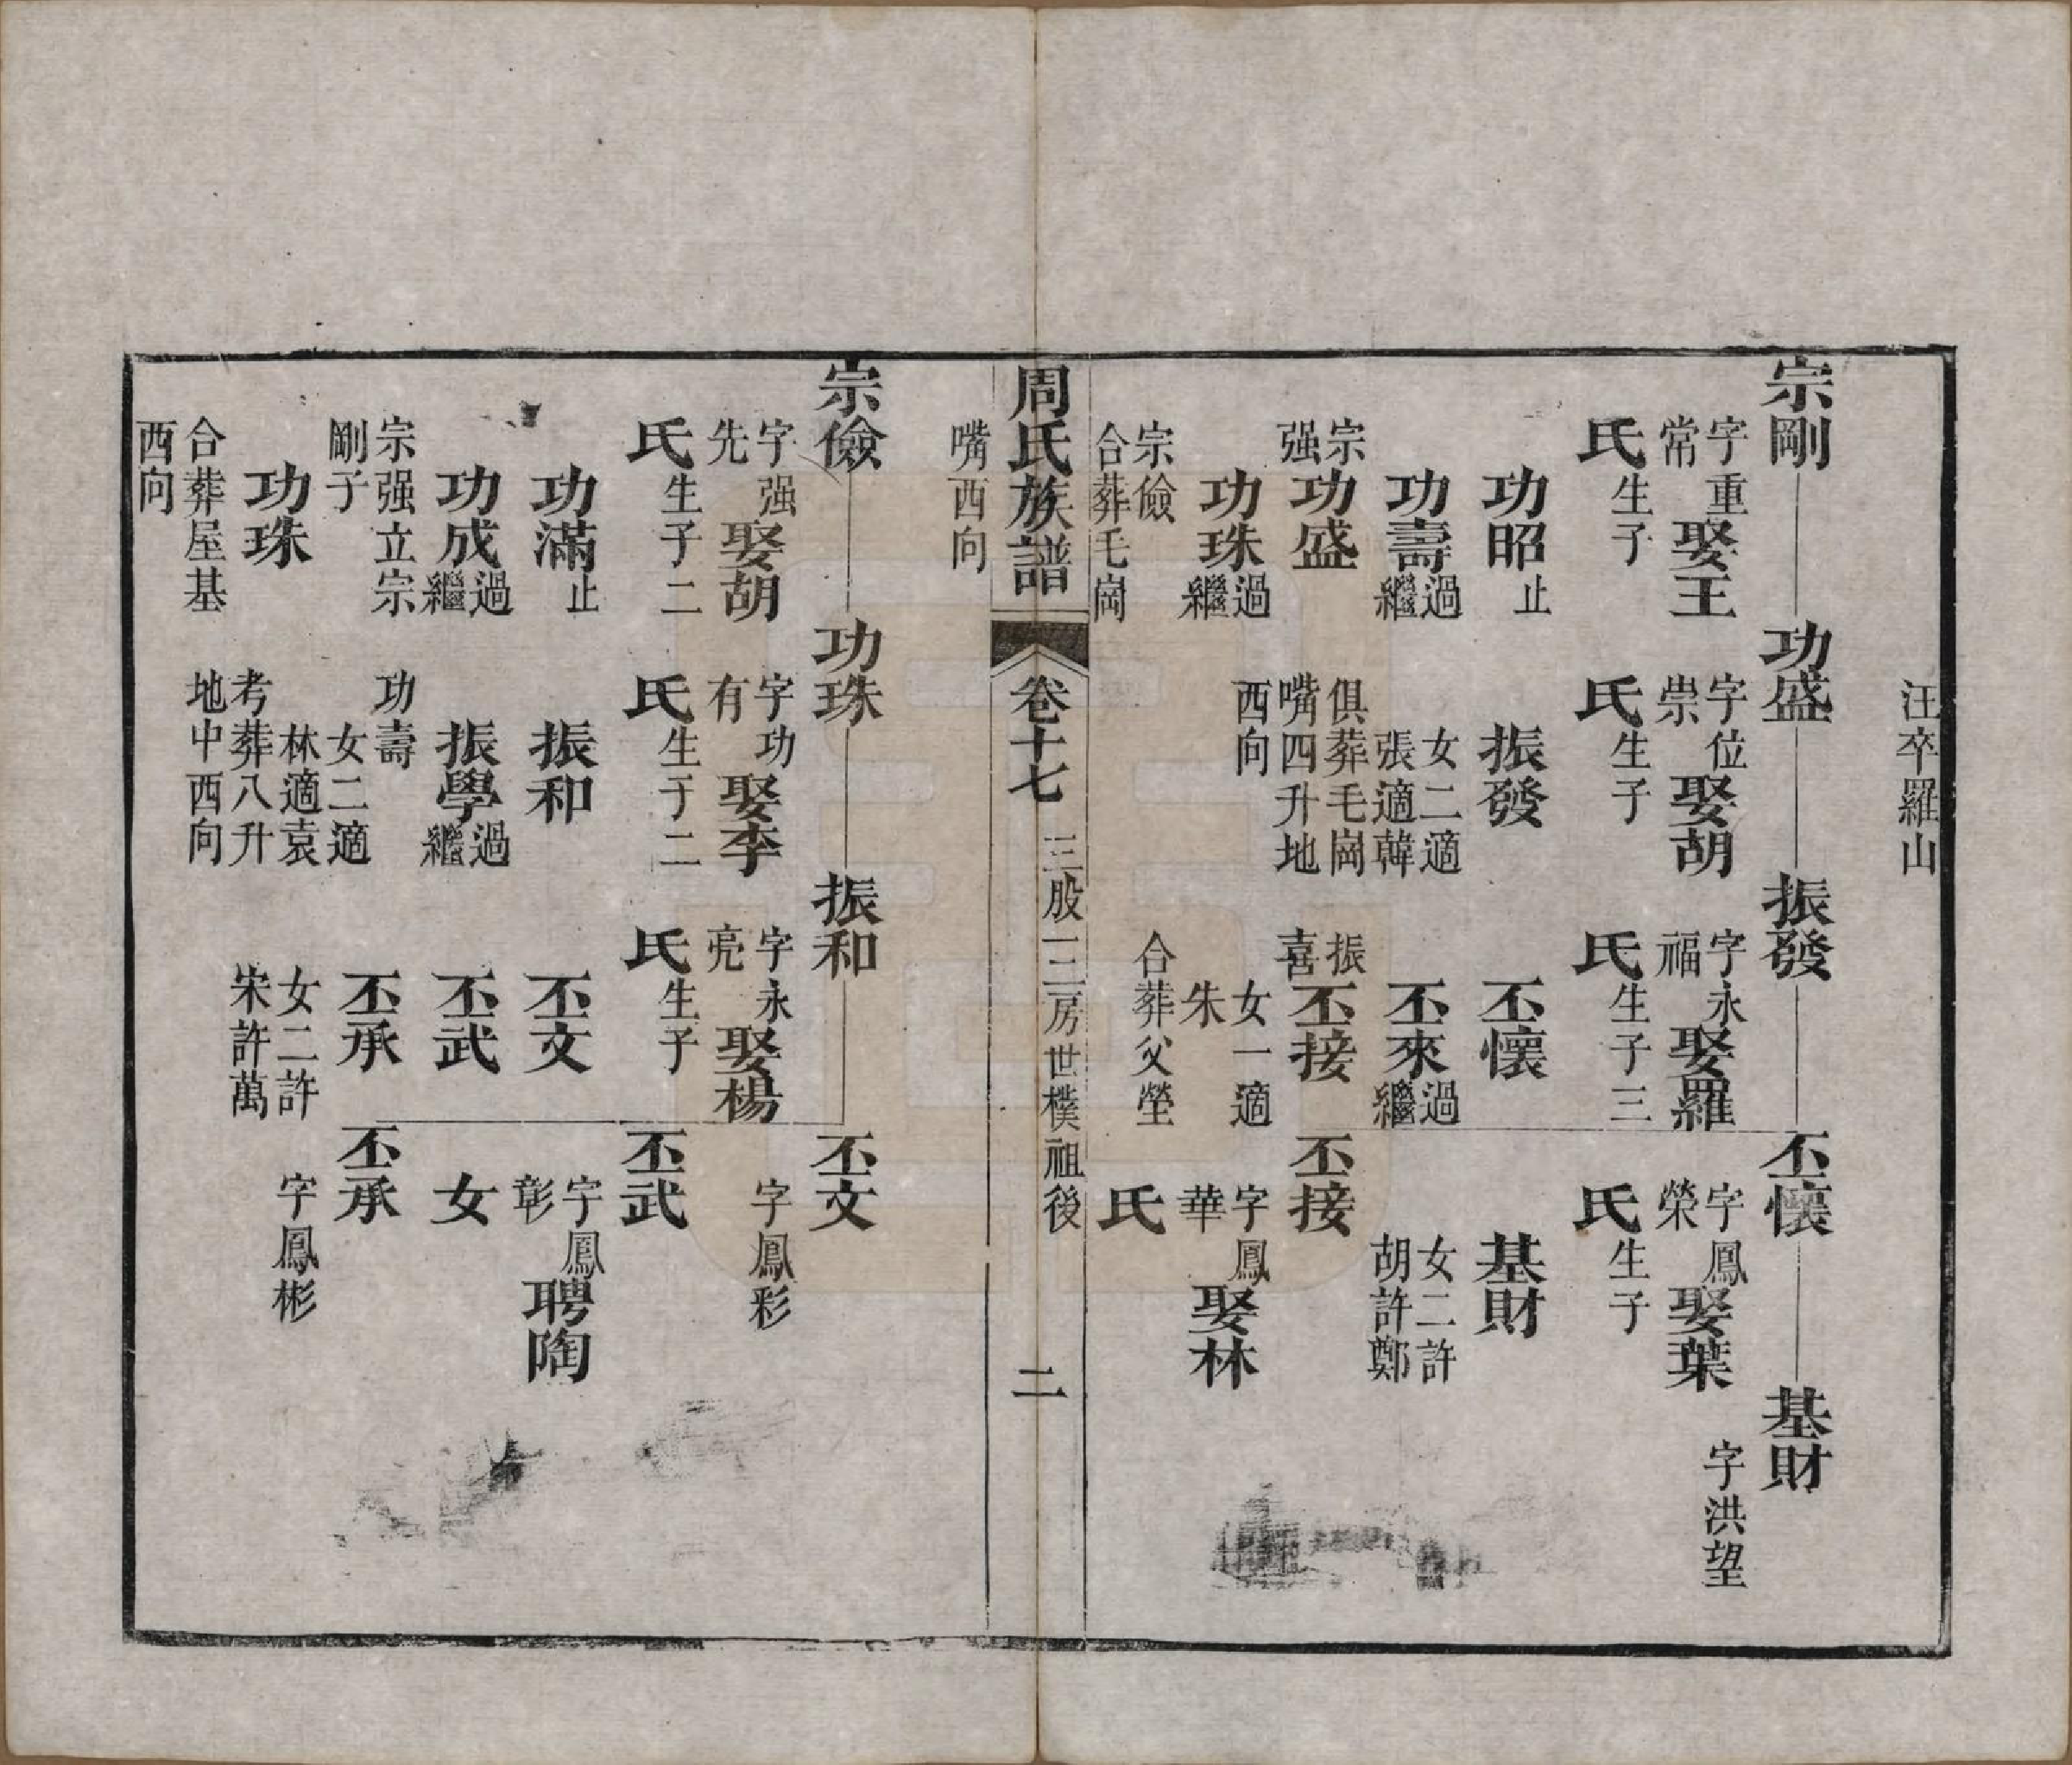 汪卒羅山
宗剛 功盛 振發 丕懷 基財
字重常娶王 字位祟娶胡 字永福娶羅 字鳳榮娶葉 字洪望
氏生子 氏生子 氏生子三 氏生子
功昭止 振發 丕懷 基財
功壽過繼 女二適張適韓 丕來過繼 女二許胡許鄭
宗强功盛 俱葬毛崗嘴四升地西向 振喜丕接 丕接
功珠過繼 女一適朱 字鳳華娶林
宗儉合葬毛崗 合葬父塋 氏
周氏族譜 卷十七 三股二三房世樸祖後 二
嘴西向
宗儉 功珠 振和 丕文
字强先娶胡 字功有娶李 字永亮娶楊 字鳳彩
氏生子二 氏生子二 氏生子 丕武
功滿止 振和 丕文 字鳳彰聘陶
功成過繼 振學過繼 丕武 女
宗强立宗剛子 功壽 女二適林適袁 丕承 丕承
功珠 考葬八升地中西向 女二許宋許萬 字鳳彬
合葬屋基西向